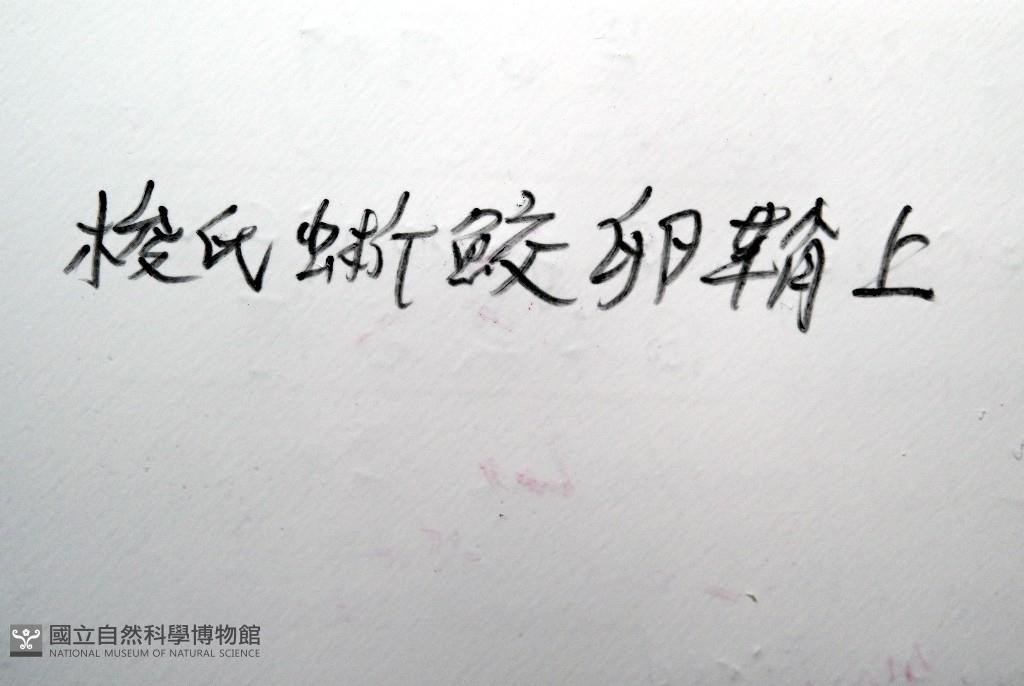 梭氏蜥鮫卵鞘上
國立自然科學博物館
NATIONAL MUSEUM OF NATURAL SCIENCE